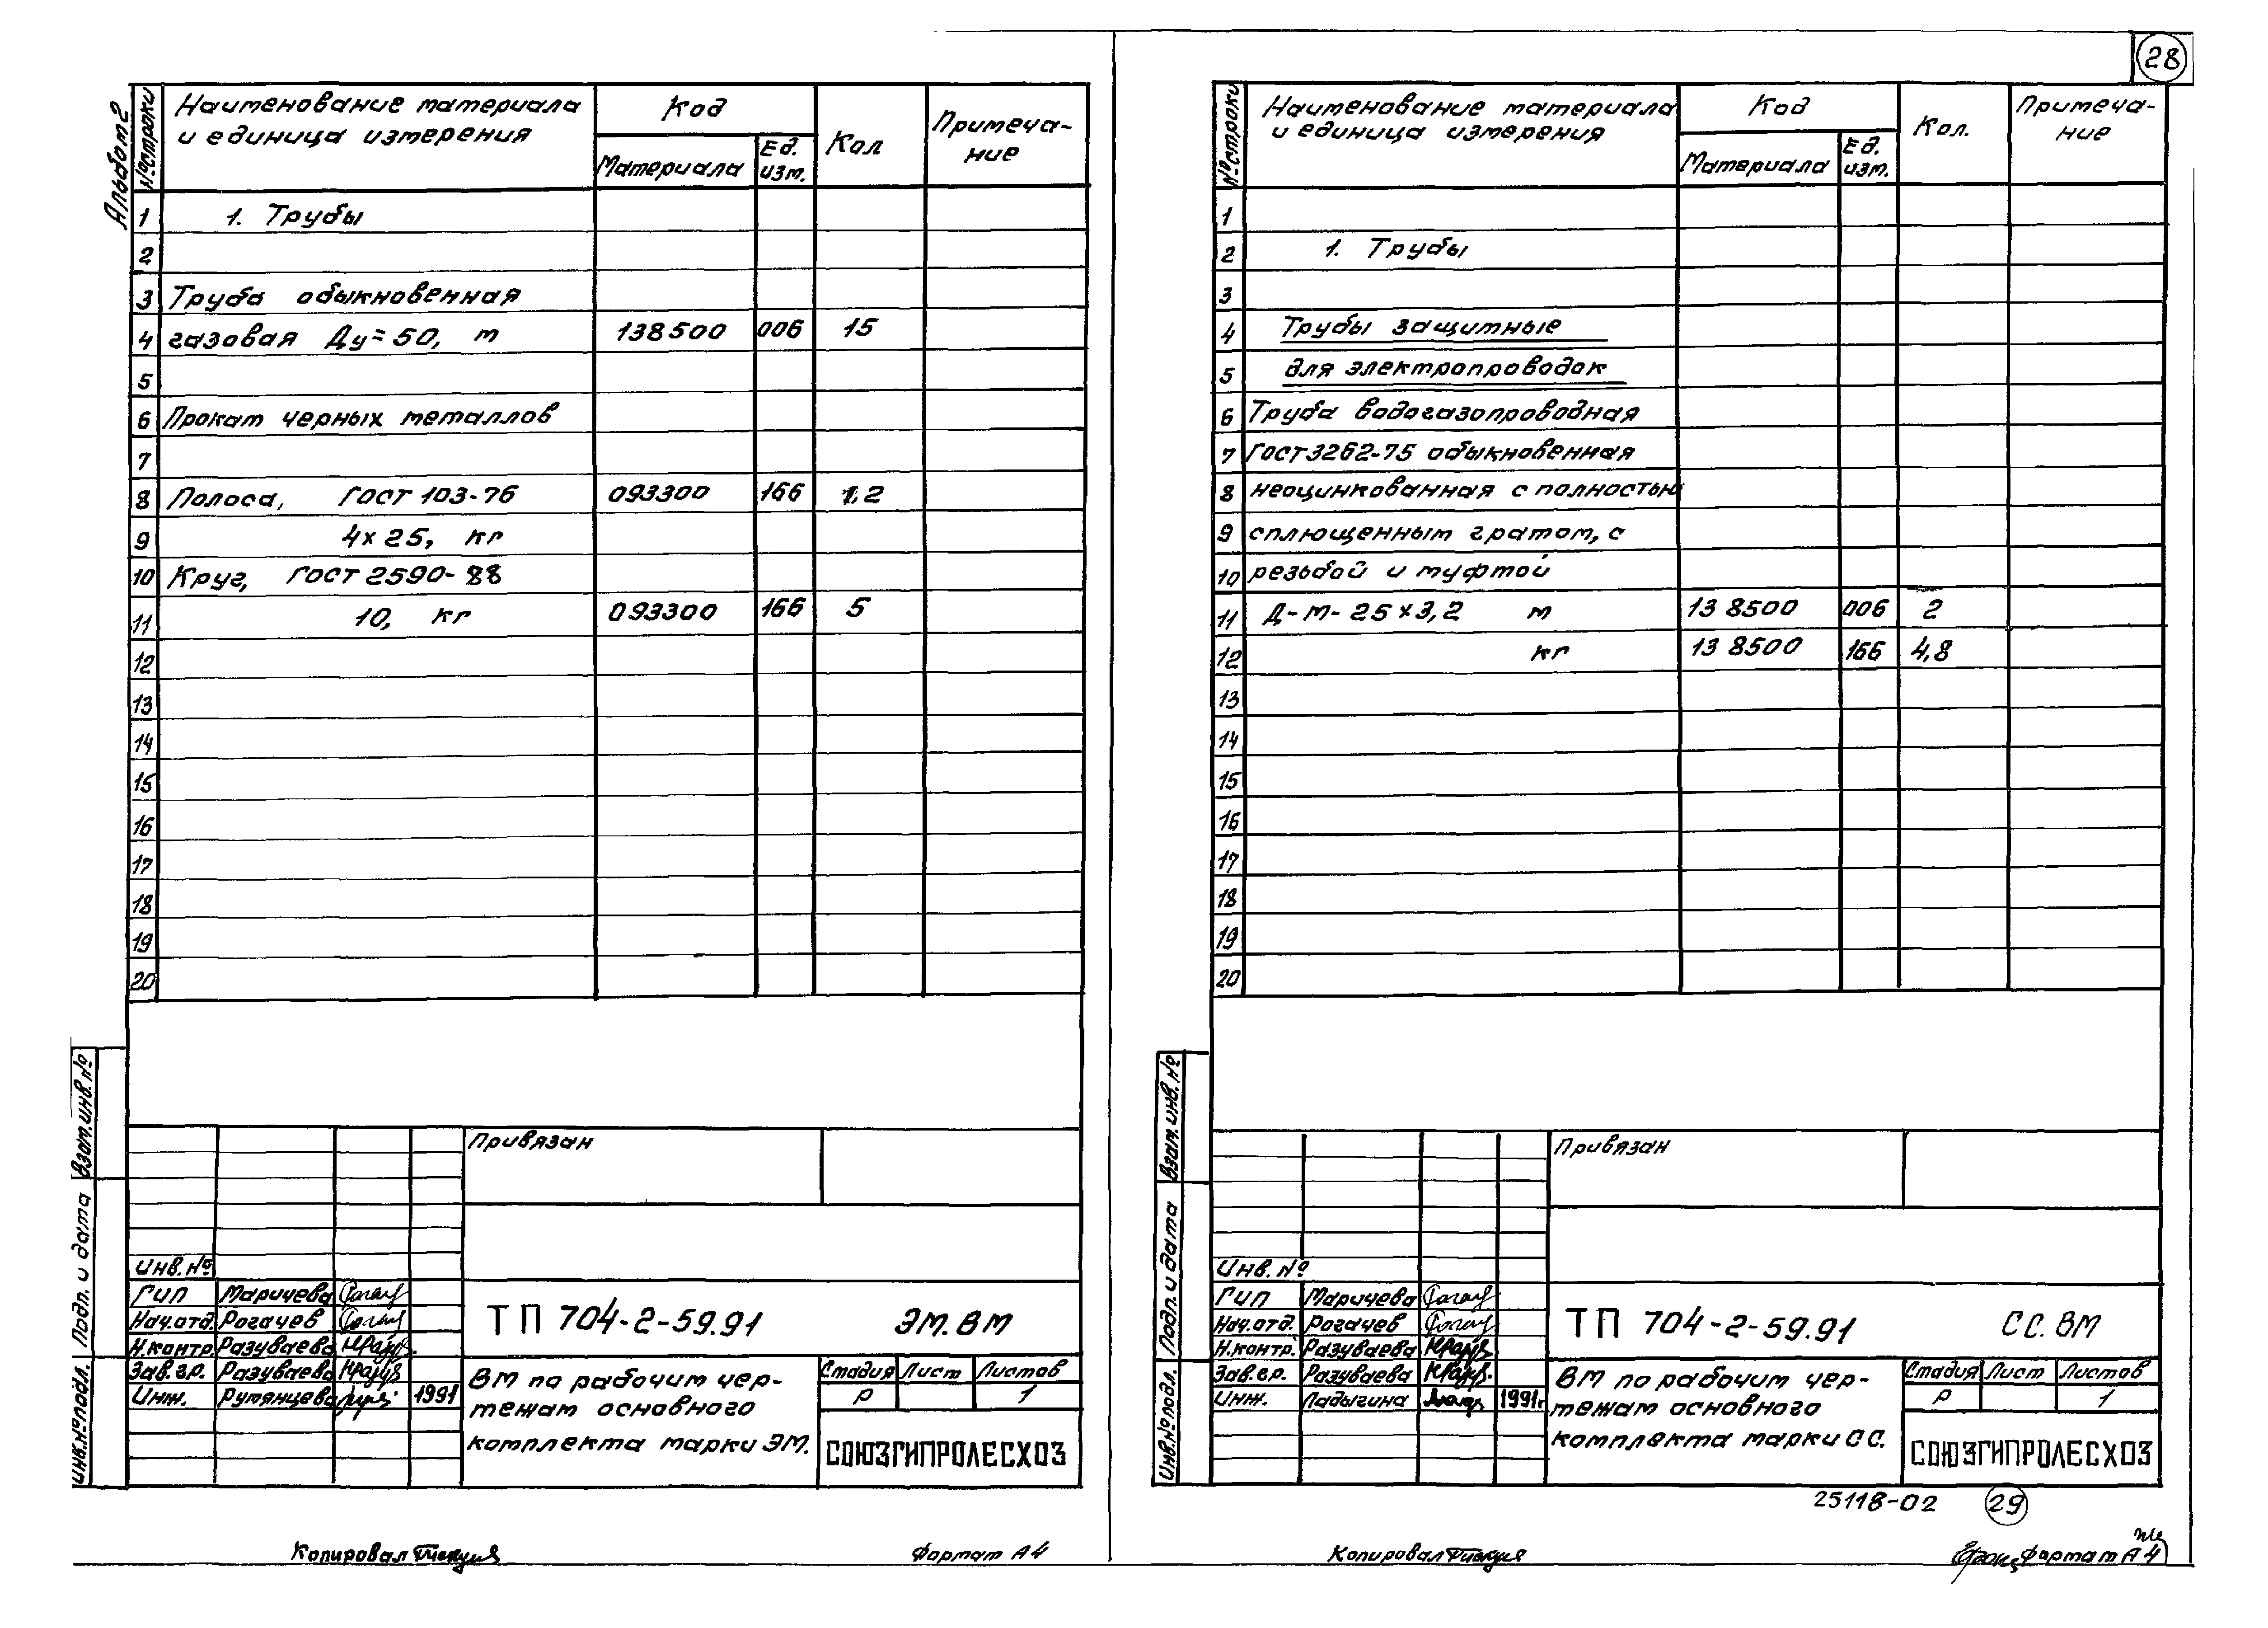 28
Альбом 2
№ строки
Наименование материала
и единица измерения
Код
Материала
Ед.
изм.
Кол
Примеча-
ние
1 1. Трубы
2
3 Труба обыкновенная
4 газовая Ду=50, м 138500 006 15
5
6 Прокат черных металлов
7
8 Полоса, ГОСТ 103-76 093300 166 1,2
9 4х25, кг
10 Круг, ГОСТ 2590-88
11 10, кг 093300 166 5
12
13
14
15
16
17
18
19
20
Взам. инв. №
Подп. и дата
Инв. № подл.
Привязан
Инв. №
Гип Маричева
Нач. отд. Рогачев
Н. контр. Разуваева
Зав. гр. Разуваева
Инж. Румянцева 1991
ТП 704-2-59.91 ЭМ. ВМ
ВМ по рабочим чер-
тежам основного
комплекта марки ЭМ.
Стадия Лист Листов
Р 1
СОЮЗГИПРОЛЕСХОЗ
Копировал
Формат А4
№ строки
Наименование материала
и единица измерения
Код
Материала
Ед.
изм.
Кол.
Примеча-
ние
1
2 1. Трубы
3
4 Трубы защитные
5 для электропроводок
6 Труба водогазопроводная
7 ГОСТ 3262-75 обыкновенная
8 неоцинкованная с полностью
9 сплющенным гратом, с
10 резьбой и муфтой
11 Д-М-25х3,2 м 13 8500 006 2
12 кг 13 8500 166 4,8
13
14
15
16
17
18
19
20
Взам. инв. №
Подп. и дата
Инв. № подл.
Привязан
Инв. №
Гип Маричева
Нач. отд. Рогачев
Н. контр. Разуваева
Зав. гр. Разуваева
Инж. Ладыгина 1991г
ТП 704-2-59.91 СС. ВМ
ВМ по рабочим чер-
тежам основного
комплекта марки СС.
Стадия Лист Листов
Р 1
СОЮЗГИПРОЛЕСХОЗ
25118-02 29
Копировал
Формат А4